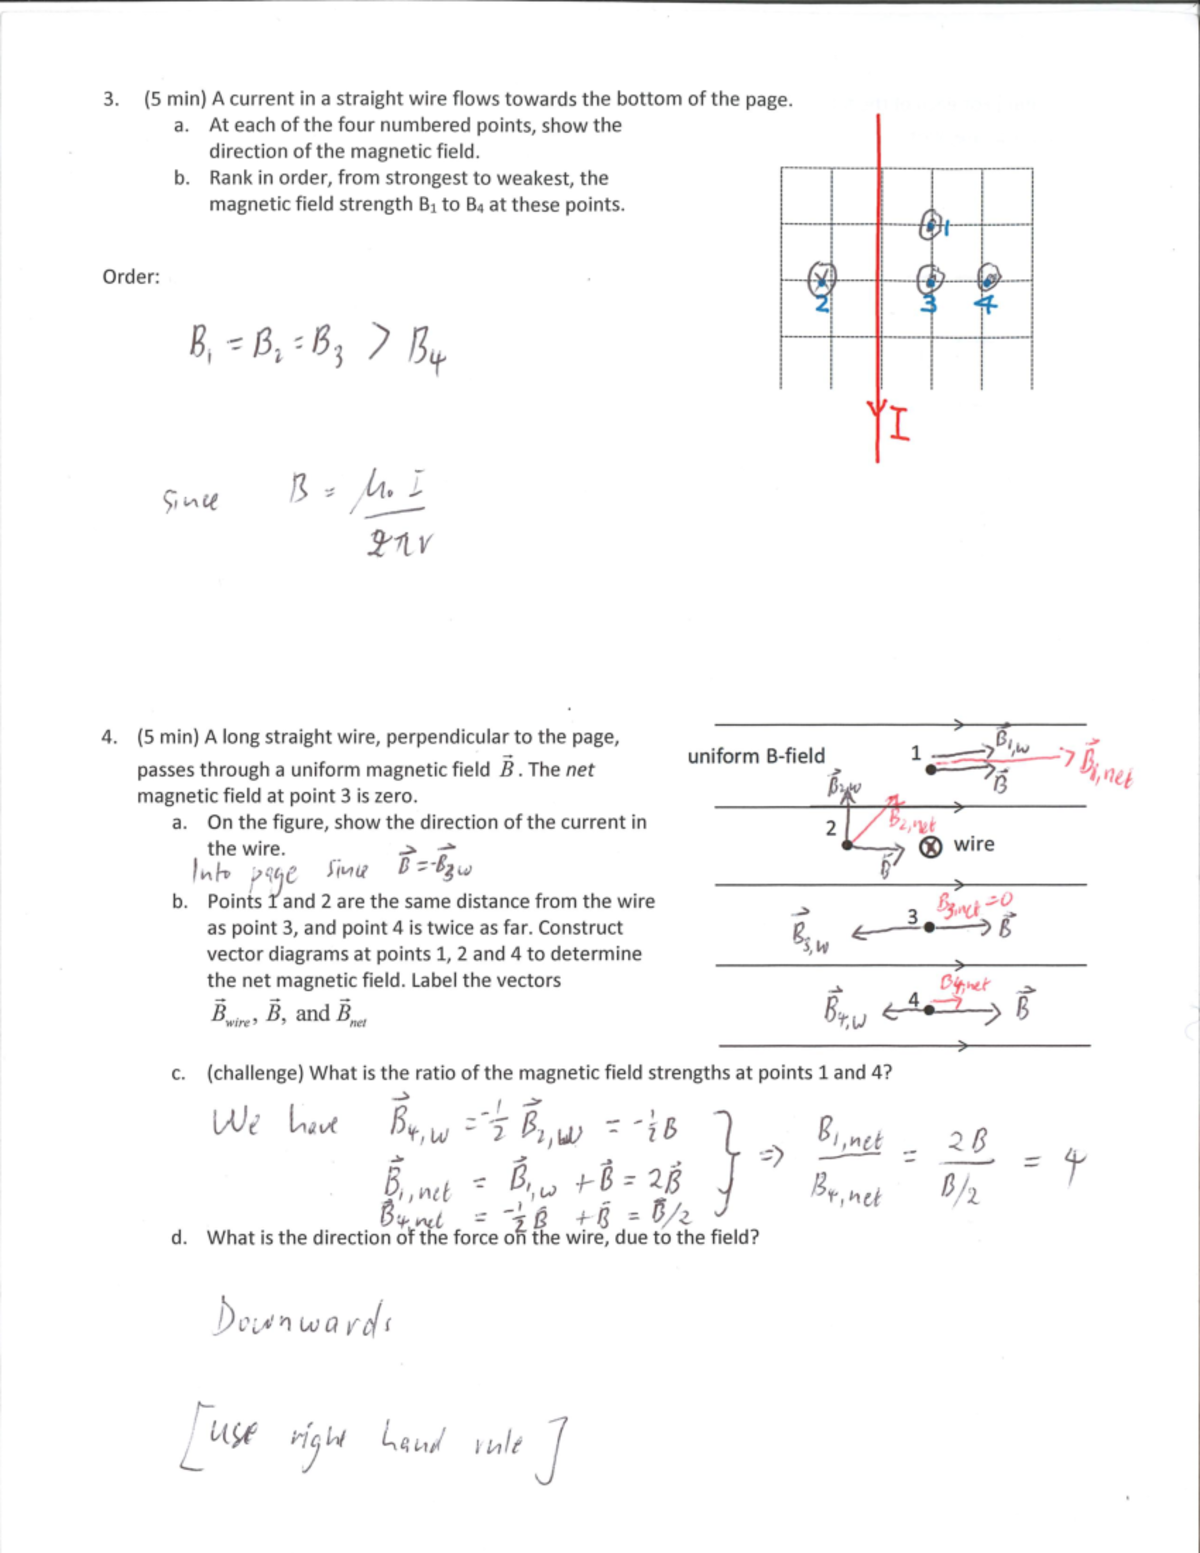 3. (5 min) A current in a straight wire flows towards the bottom of the page.
a. At each of the four numbered points, show the
direction of the magnetic field.
b. Rank in order, from strongest to weakest, the
magnetic field strength B₁ to B₄ at these points.
1
2
3
4
I
Order:
B₁ = B₂ = B₃ > B₄
Since B = μ₀ I / 2πr
4. (5 min) A long straight wire, perpendicular to the page,
passes through a uniform magnetic field B⃗. The net
magnetic field at point 3 is zero.
a. On the figure, show the direction of the current in
the wire.
Into page since B⃗ = -B⃗₃w
b. Points 1 and 2 are the same distance from the wire
as point 3, and point 4 is twice as far. Construct
vector diagrams at points 1, 2 and 4 to determine
the net magnetic field. Label the vectors
B⃗wire, B⃗, and B⃗net
uniform B-field
1 B⃗₁,w B⃗ B⃗₁,net
B⃗₂,w
2 B₂,net B⃗
wire
B⃗₃,w 3 B₃,net = 0 B⃗
B⃗₄,w 4 B₄,net B⃗
c. (challenge) What is the ratio of the magnetic field strengths at points 1 and 4?
We have B⃗₄,w = -½ B⃗₁,w = -½B
B⃗₁,net = B⃗₁,w + B⃗ = 2B⃗
B⃗₄,net = -½ B⃗ + B⃗ = B⃗/2
} ⇒ B₁,net / B₄,net = 2B / B/2 = 4
d. What is the direction of the force on the wire, due to the field?
Downwards
[use right hand rule]